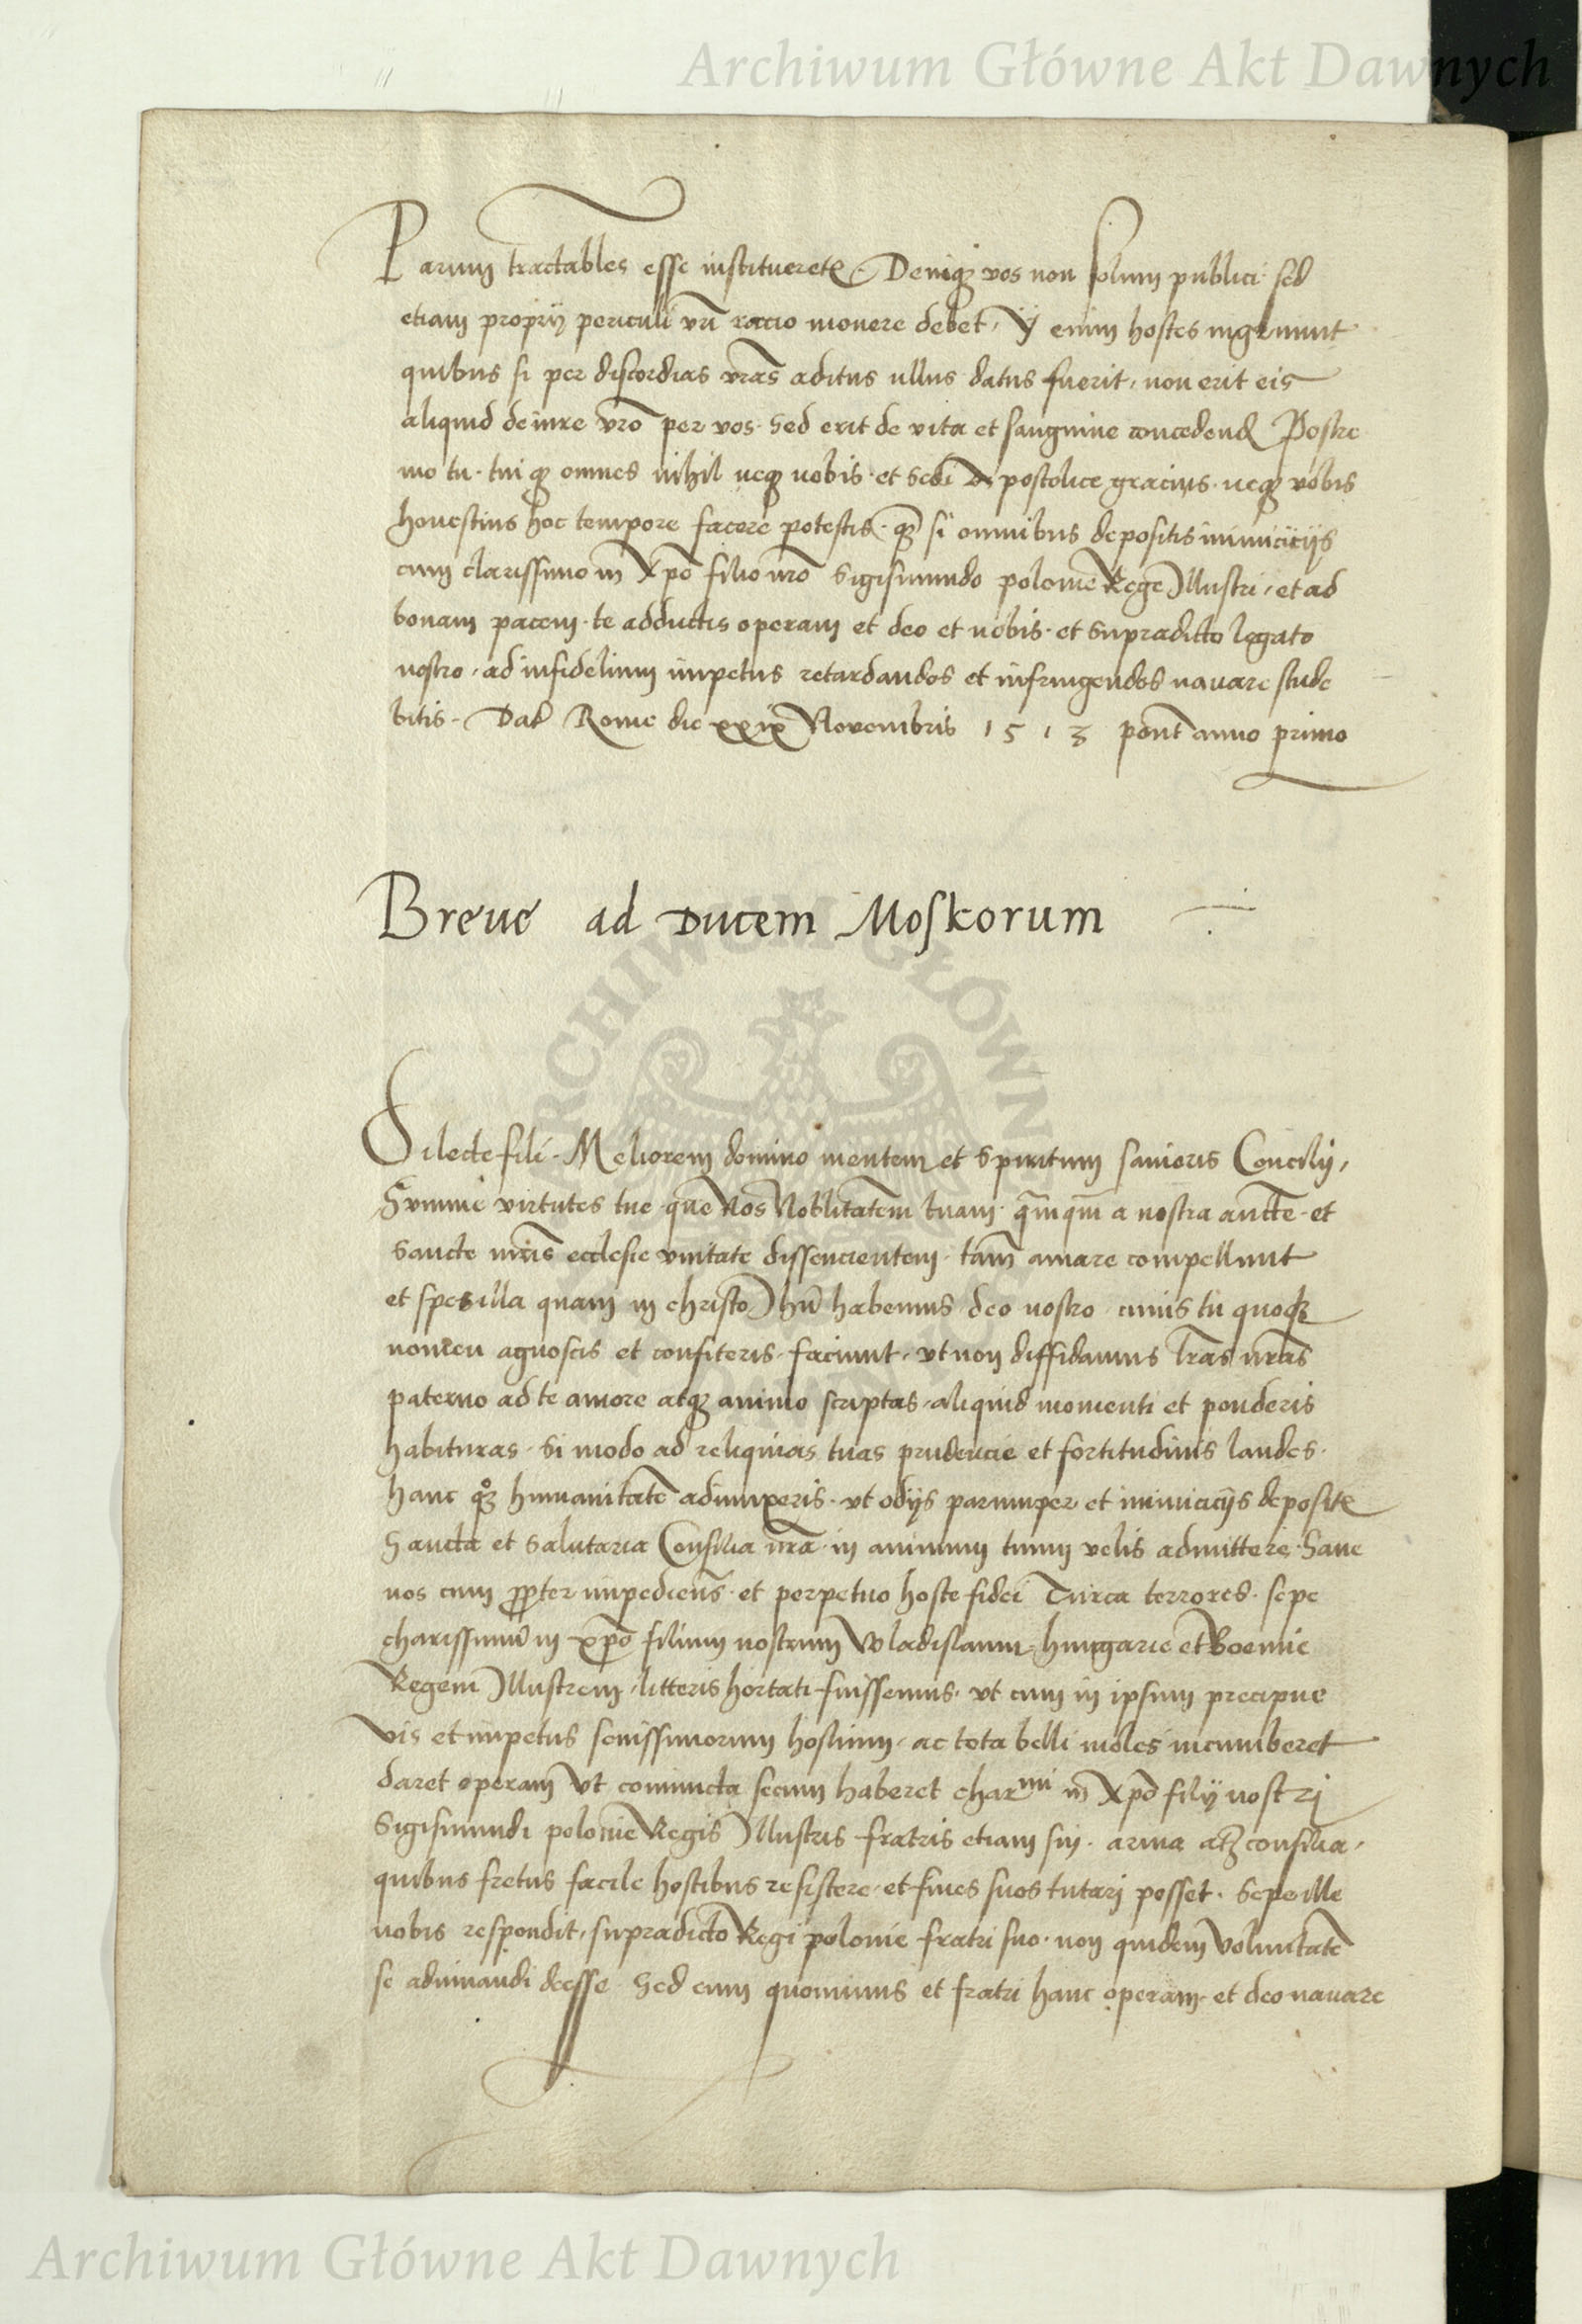 Archiwum Główne Akt Dawnych
Parum tractables esse institueretꝭ. Deniqꝫ vos non solum publici· sed
etiam proprÿ periculi vrī racio monere debet, ÿ enim hostes ingrunnt
quibus si per discordias vrās aditus ullus datus fuerit, non erit eis
aliquid de iure vrō per vos· sed erit de vita et sanguine concedend Postre
mo tu· tui qꝫ omnes nihil neqꝫ nobis· et sedi apostolice gracius· neqꝫ vobis
honestius hoc tempore facere potestis· qꝫ si omnibus depositis inimicicÿs
cum clarissimo in Xpō filio nrō Sigismundo polonie Rege Illustri, et ad
bonam pacem· te adductis operam et deo et nobis· et supradicto legato
nostro, ad infidelium impetus retardandos et infringendos navare stude
bitis· Dat Rome die xxix Novembris 1513 pont anno primo
Breue ad Ducem Moskorum
Dilecte fili· Meliorem domino mentem et Spiritum sanioris Concilÿ,
Summe virtutes tue· que Nos Nobilitatem tuam· qmqm a nostra auctte· et
Sancte mris ecclesie vnitate dissencientem· tam amare compellunt
et spes illa quam in christo Ihu habemus deo nostro, cuius tu quoqꝫ
nomen agnoscis et confiteris, faciunt, vt non diffidamus lrās nrās
paterno ad te amore atqꝫ animo scriptas, aliquid momenti et ponderis
habituras· si modo ad reliquias tuas prudencie et fortitudinis laudes·
hanc qꝫ humanitatē adiunxeris· vt odÿs parumper et inimicicÿs depositꝭ
Sancta et salutaria Consilia nrā in animum tuum velis admittere· Sane
nos cum propter impedienš· et perpetuo hoste fidei Turca terrores· sepe
charissimū in xpō filium nostrum Vladislaum hungarie et Boemie
Regem Illustrem, litteris hortati fuissemus· vt cum in ipsum precipue
vis et impetus seuissimorum hostium, ac tota belli moles incumberet
daret operam vt coniuncta secum haberet charmi in Xpō filÿ nostri
Sigismundi polonie Regis Illustris fratris etiam sui· arma atqꝫ consilia,
quibus fretus facile hostibus resistere, et fines suos tutari posset· Sepe ille
nobis respondit, supradicto Regi polonie fratri suo· non quidem voluntatē
se adiuuandi deesse· Sed eum quominus et fratri hanc operam· et deo navare
Archiwum Główne Akt Dawnych